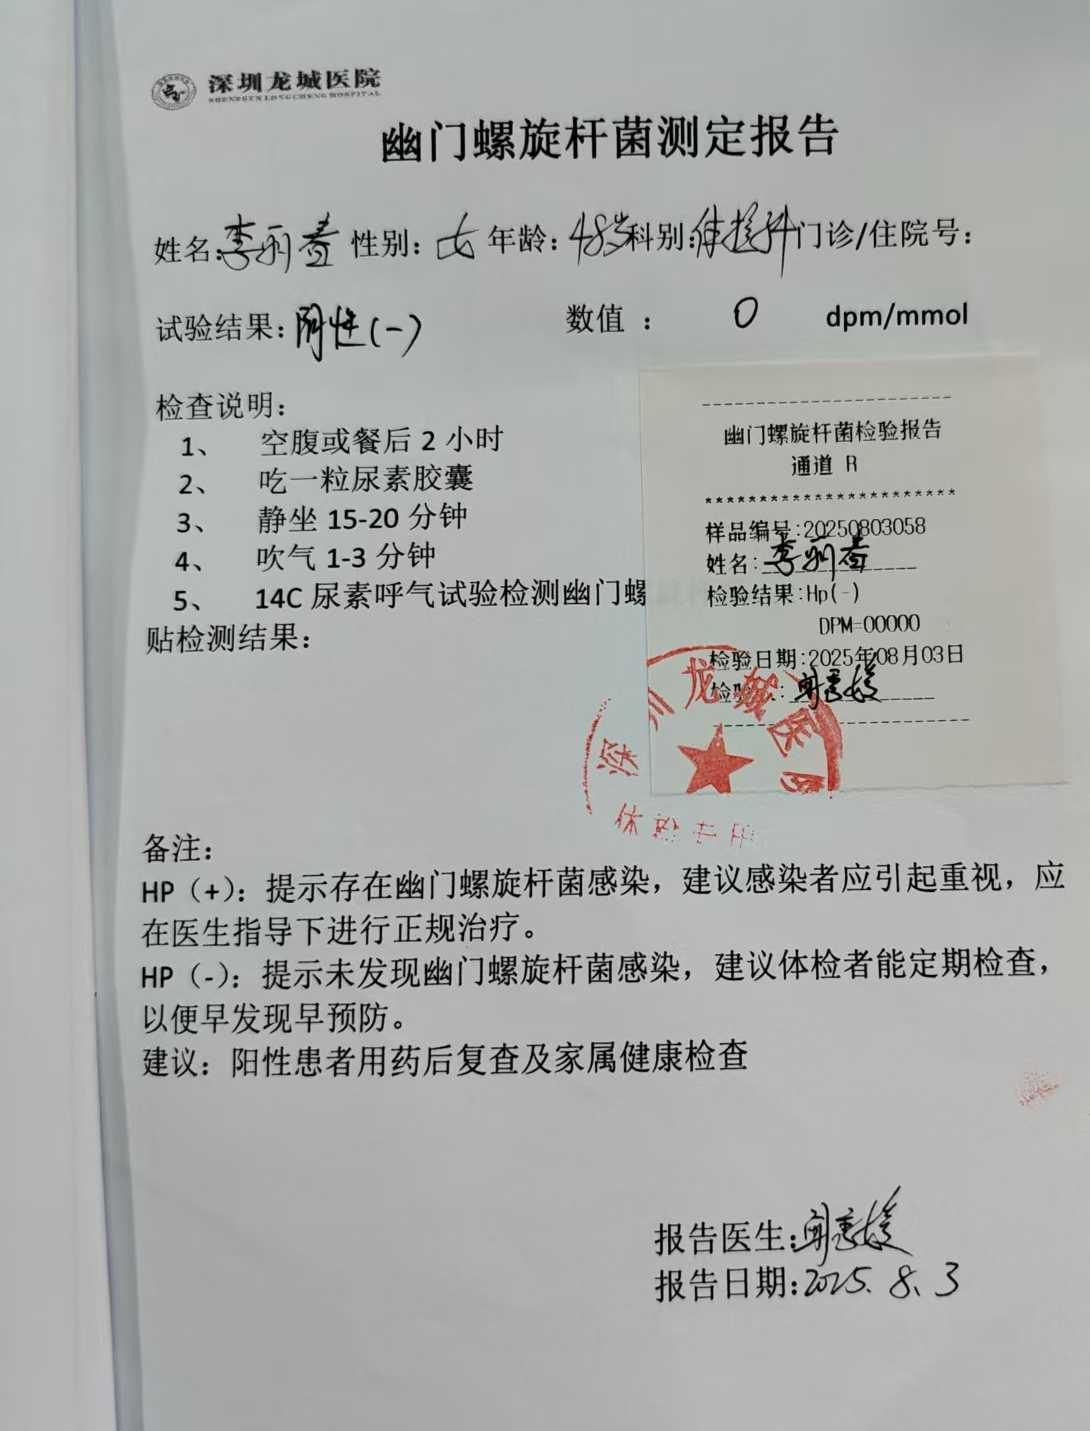 深圳龙城医院
SHENZHEN LONGCHENG HOSPITAL
幽门螺旋杆菌测定报告
姓名:李丽萱 性别:女 年龄:48岁 科别:体检科 门诊/住院号:
试验结果:阴性(-) 数值: 0 dpm/mmol
检查说明:
1、 空腹或餐后 2 小时
2、 吃一粒尿素胶囊
3、 静坐 15-20 分钟
4、 吹气 1-3 分钟
5、 14C 尿素呼气试验检测幽门螺
贴检测结果:
幽门螺旋杆菌检验报告
通道 R
**********************
样品编号:20250803058
姓名:李丽萱
检验结果:Hp(-)
DPM=00000
检验日期:2025年08月03日
检验
深圳龙城医院
体检专用
备注:
HP(+):提示存在幽门螺旋杆菌感染,建议感染者应引起重视,应
在医生指导下进行正规治疗。
HP(-):提示未发现幽门螺旋杆菌感染,建议体检者能定期检查,
以便早发现早预防。
建议:阳性患者用药后复查及家属健康检查
报告医生:
报告日期:2025.8.3